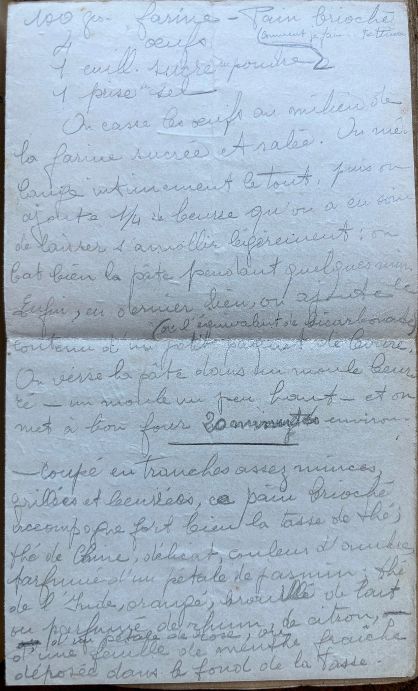 100 grs. farine - Pain brioché
4 œufs
1 cuill. sucre en poudre
1 prise de sel
On casse les œufs au milieu de
la farine sucrée et salée. On mé-
lange intimement le tout, puis on
ajoute 1/4 de beurre qu'on a eu soin
de laisser s'amollir légèrement ; on
bat bien la pâte pendant quelques min
Enfin, en dernier lieu, on ajoute le
(ou l'équivalent de bicarbonate)
contenu d'un petit paquet de levure.
On verse la pâte dans un moule beur
ré - un moule un peu haut - et on
met à bon four 20 minutes environ.
- Coupé en tranches assez minces,
grillées et beurrées, ce pain brioché
accompagne fort bien la tasse de thé,
thé de Chine, délicat, couleur d'ambre
parfumé d'un pétale de jasmin, thé
de l'Inde, orangé, brouillé de lait
ou parfumé de rhum, de citron, -
d'un pétale de rose, ou
d'une feuille de menthe fraîche
déposée dans le fond de la tasse.